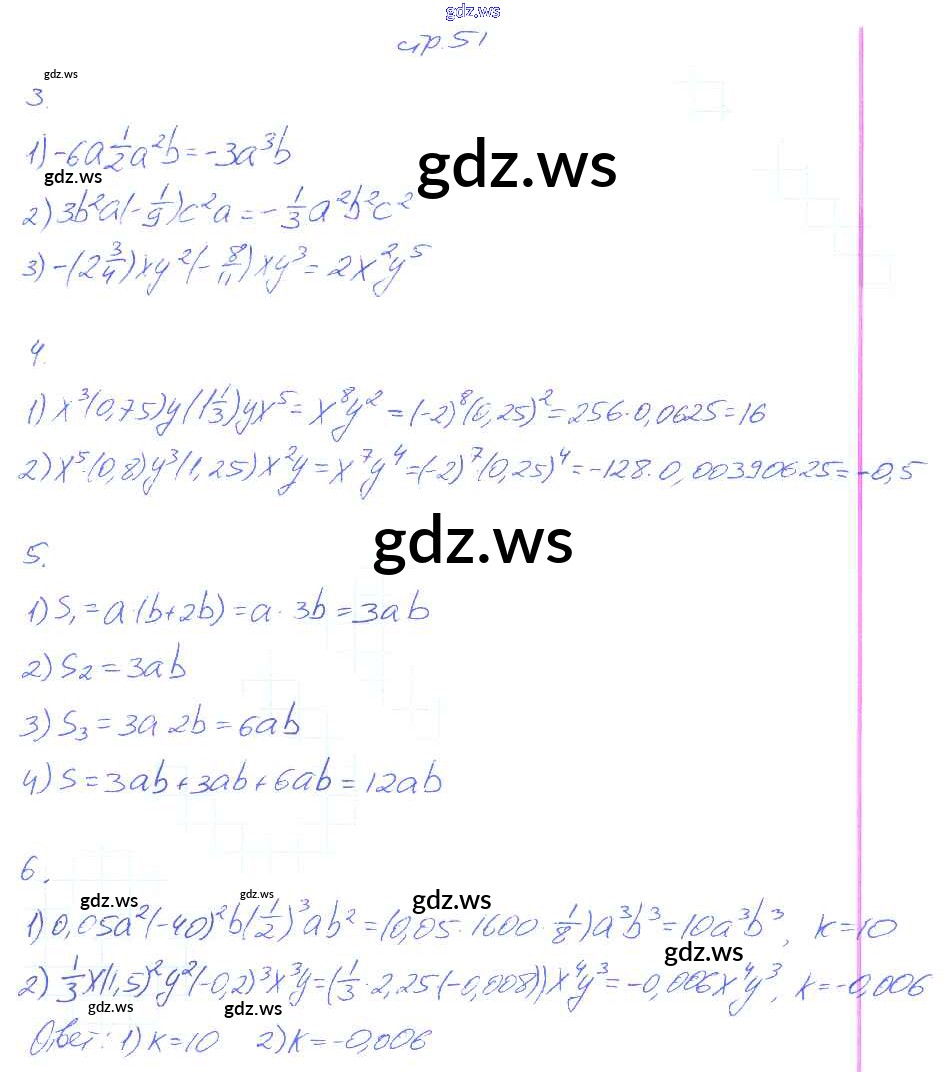 gdz.ws
стр. 51
gdz.ws
3.
1) -6a 1/2 a²b = -3a³b
gdz.ws
gdz.ws
2) 3b²a(-1/9)c²a = -1/3 a²b²c²
3) -(2 3/4)xy²(-8/11)xy³ = 2x²y⁵
4.
1) x³(0,75)y(1 1/3)yx⁵ = x⁸y² = (-2)⁸(0,25)² = 256·0,0625 = 16
2) x⁵·(0,8)y³(1,25)x²y = x⁷y⁴ = (-2)⁷·(0,25)⁴ = -128·0,00390625 = -0,5
gdz.ws
5.
1) S₁ = a·(b+2b) = a·3b = 3ab
2) S₂ = 3ab
3) S₃ = 3a·2b = 6ab
4) S = 3ab + 3ab + 6ab = 12ab
6.
gdz.ws gdz.ws gdz.ws
1) 0,05a²(-40)²b(1/2)³ab² = (0,05·1600·1/8)a³b³ = 10a³b³, k=10
gdz.ws
2) 1/3 x(1,5)²y²(-0,2)³x³y = (1/3·2,25(-0,008))x⁴y³ = -0,006x⁴y³, k=-0,006
gdz.ws gdz.ws
Ответ: 1) k=10 2) k=-0,006